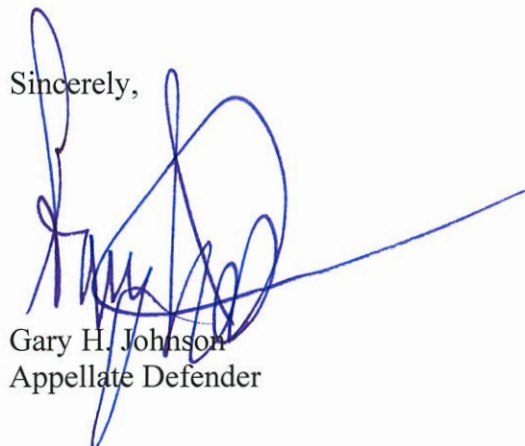 Sincerely,
Gary H. Johnson
Appellate Defender